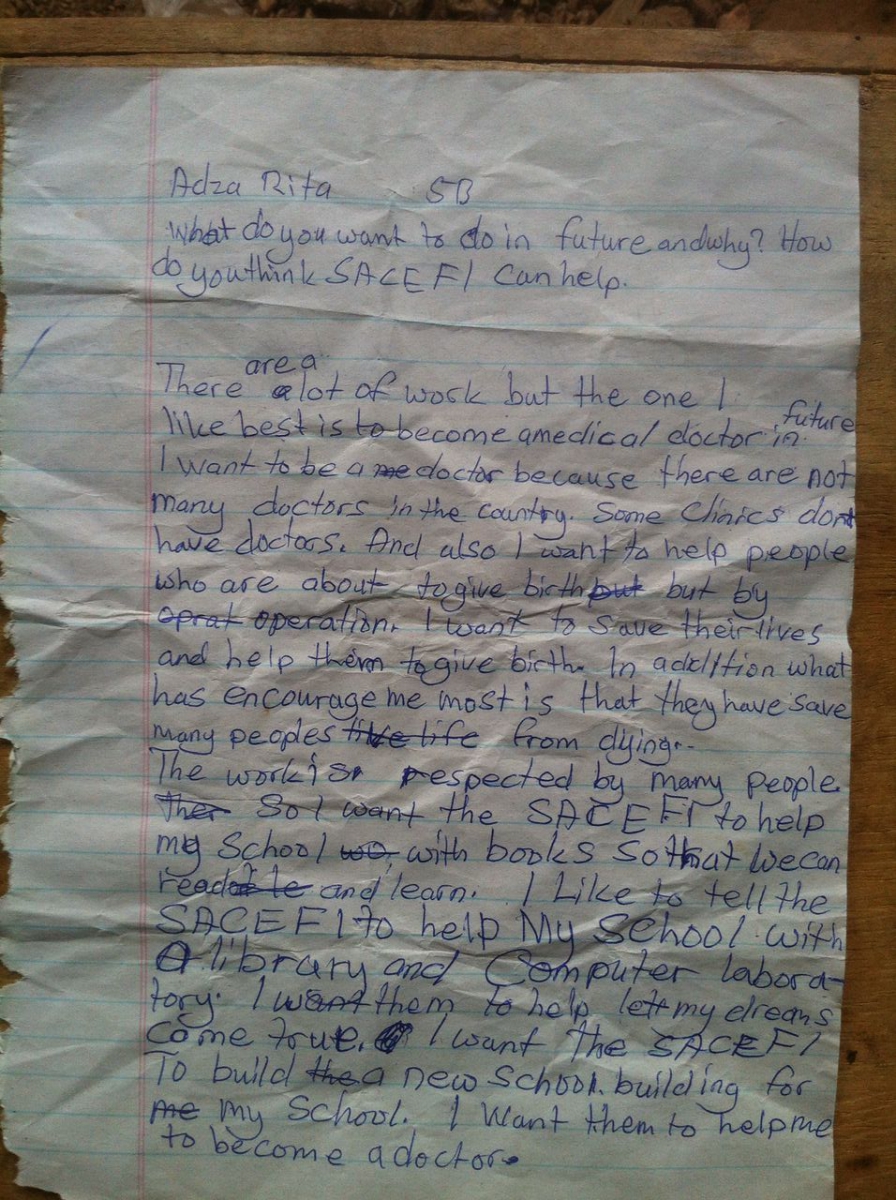 Adza Rita 5B
What do you want to do in future and why? How
do you think SACEFI Can help.
are a
There alot of work but the one I
future
like best is to become a medical doctor in
I want to be a me doctor because there are not
many doctors in the country. Some Clinics dont
have doctors. And also I want to help people
who are about to give birth but but by
oprat operation. I want to save their lives
and help them to give birth. In addition what
has encourage me most is that they have save
many peoples like life from dying.
The work is respected by many people.
Ther So I want the SACEFI to help
my School wo with books so that we can
read and learn. I Like to tell the
SACEFI to help My School with
a library and Computer labora-
tory. I want them to help let my dreams
come true. I want the SACEFI
To build the a new School building for
me my School. I Want them to help me
to become a doctor.